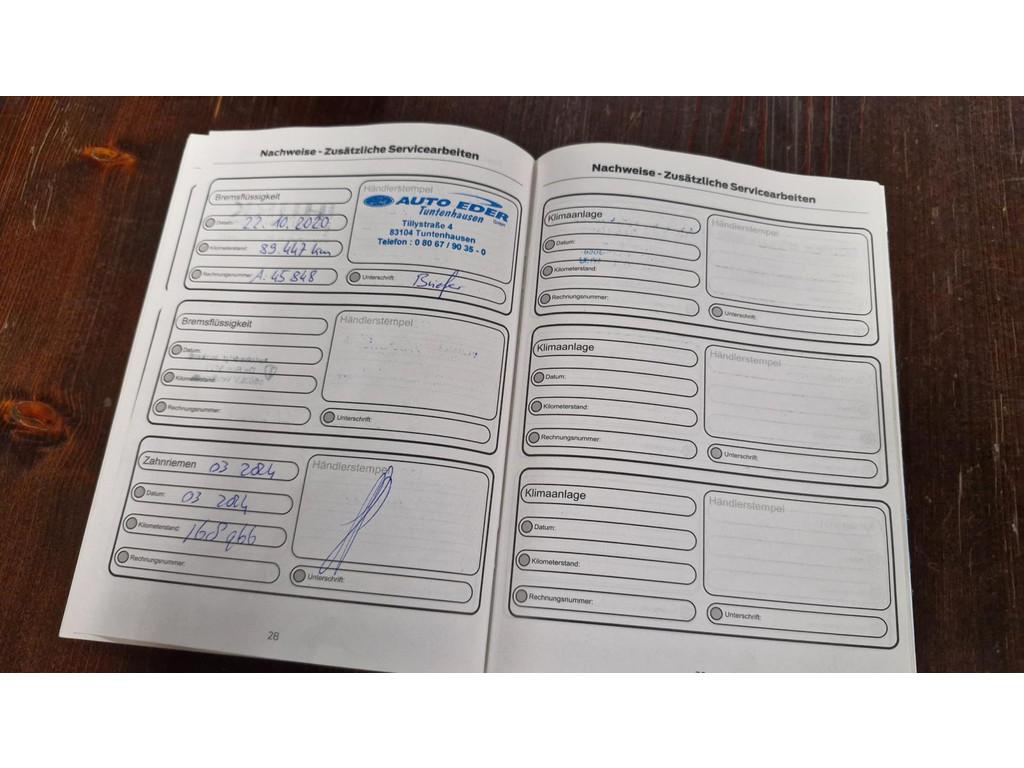 Nachweise - Zusätzliche Servicearbeiten
Bremsflüssigkeit
Datum: 22.10.2020
Kilometerstand: 89.447 km
Rechnungsnummer: A. 45848
Händlerstempel
Ford AUTO EDER GmbH
Tuntenhausen
Tillystraße 4
83104 Tuntenhausen
Telefon : 0 80 67 / 90 35 - 0
Unterschrift:
Bremsflüssigkeit
Datum:
Kilometerstand:
Rechnungsnummer:
Händlerstempel
Unterschrift:
Zahnriemen 03 2024
Datum: 03 2024
Kilometerstand: 168 966
Rechnungsnummer:
Händlerstempel
Unterschrift:
28
Nachweise - Zusätzliche Servicearbeiten
Klimaanlage
Datum:
Kilometerstand:
Rechnungsnummer:
Händlerstempel
Unterschrift:
Klimaanlage
Datum:
Kilometerstand:
Rechnungsnummer:
Händlerstempel
Unterschrift:
Klimaanlage
Datum:
Kilometerstand:
Rechnungsnummer:
Händlerstempel
Unterschrift: